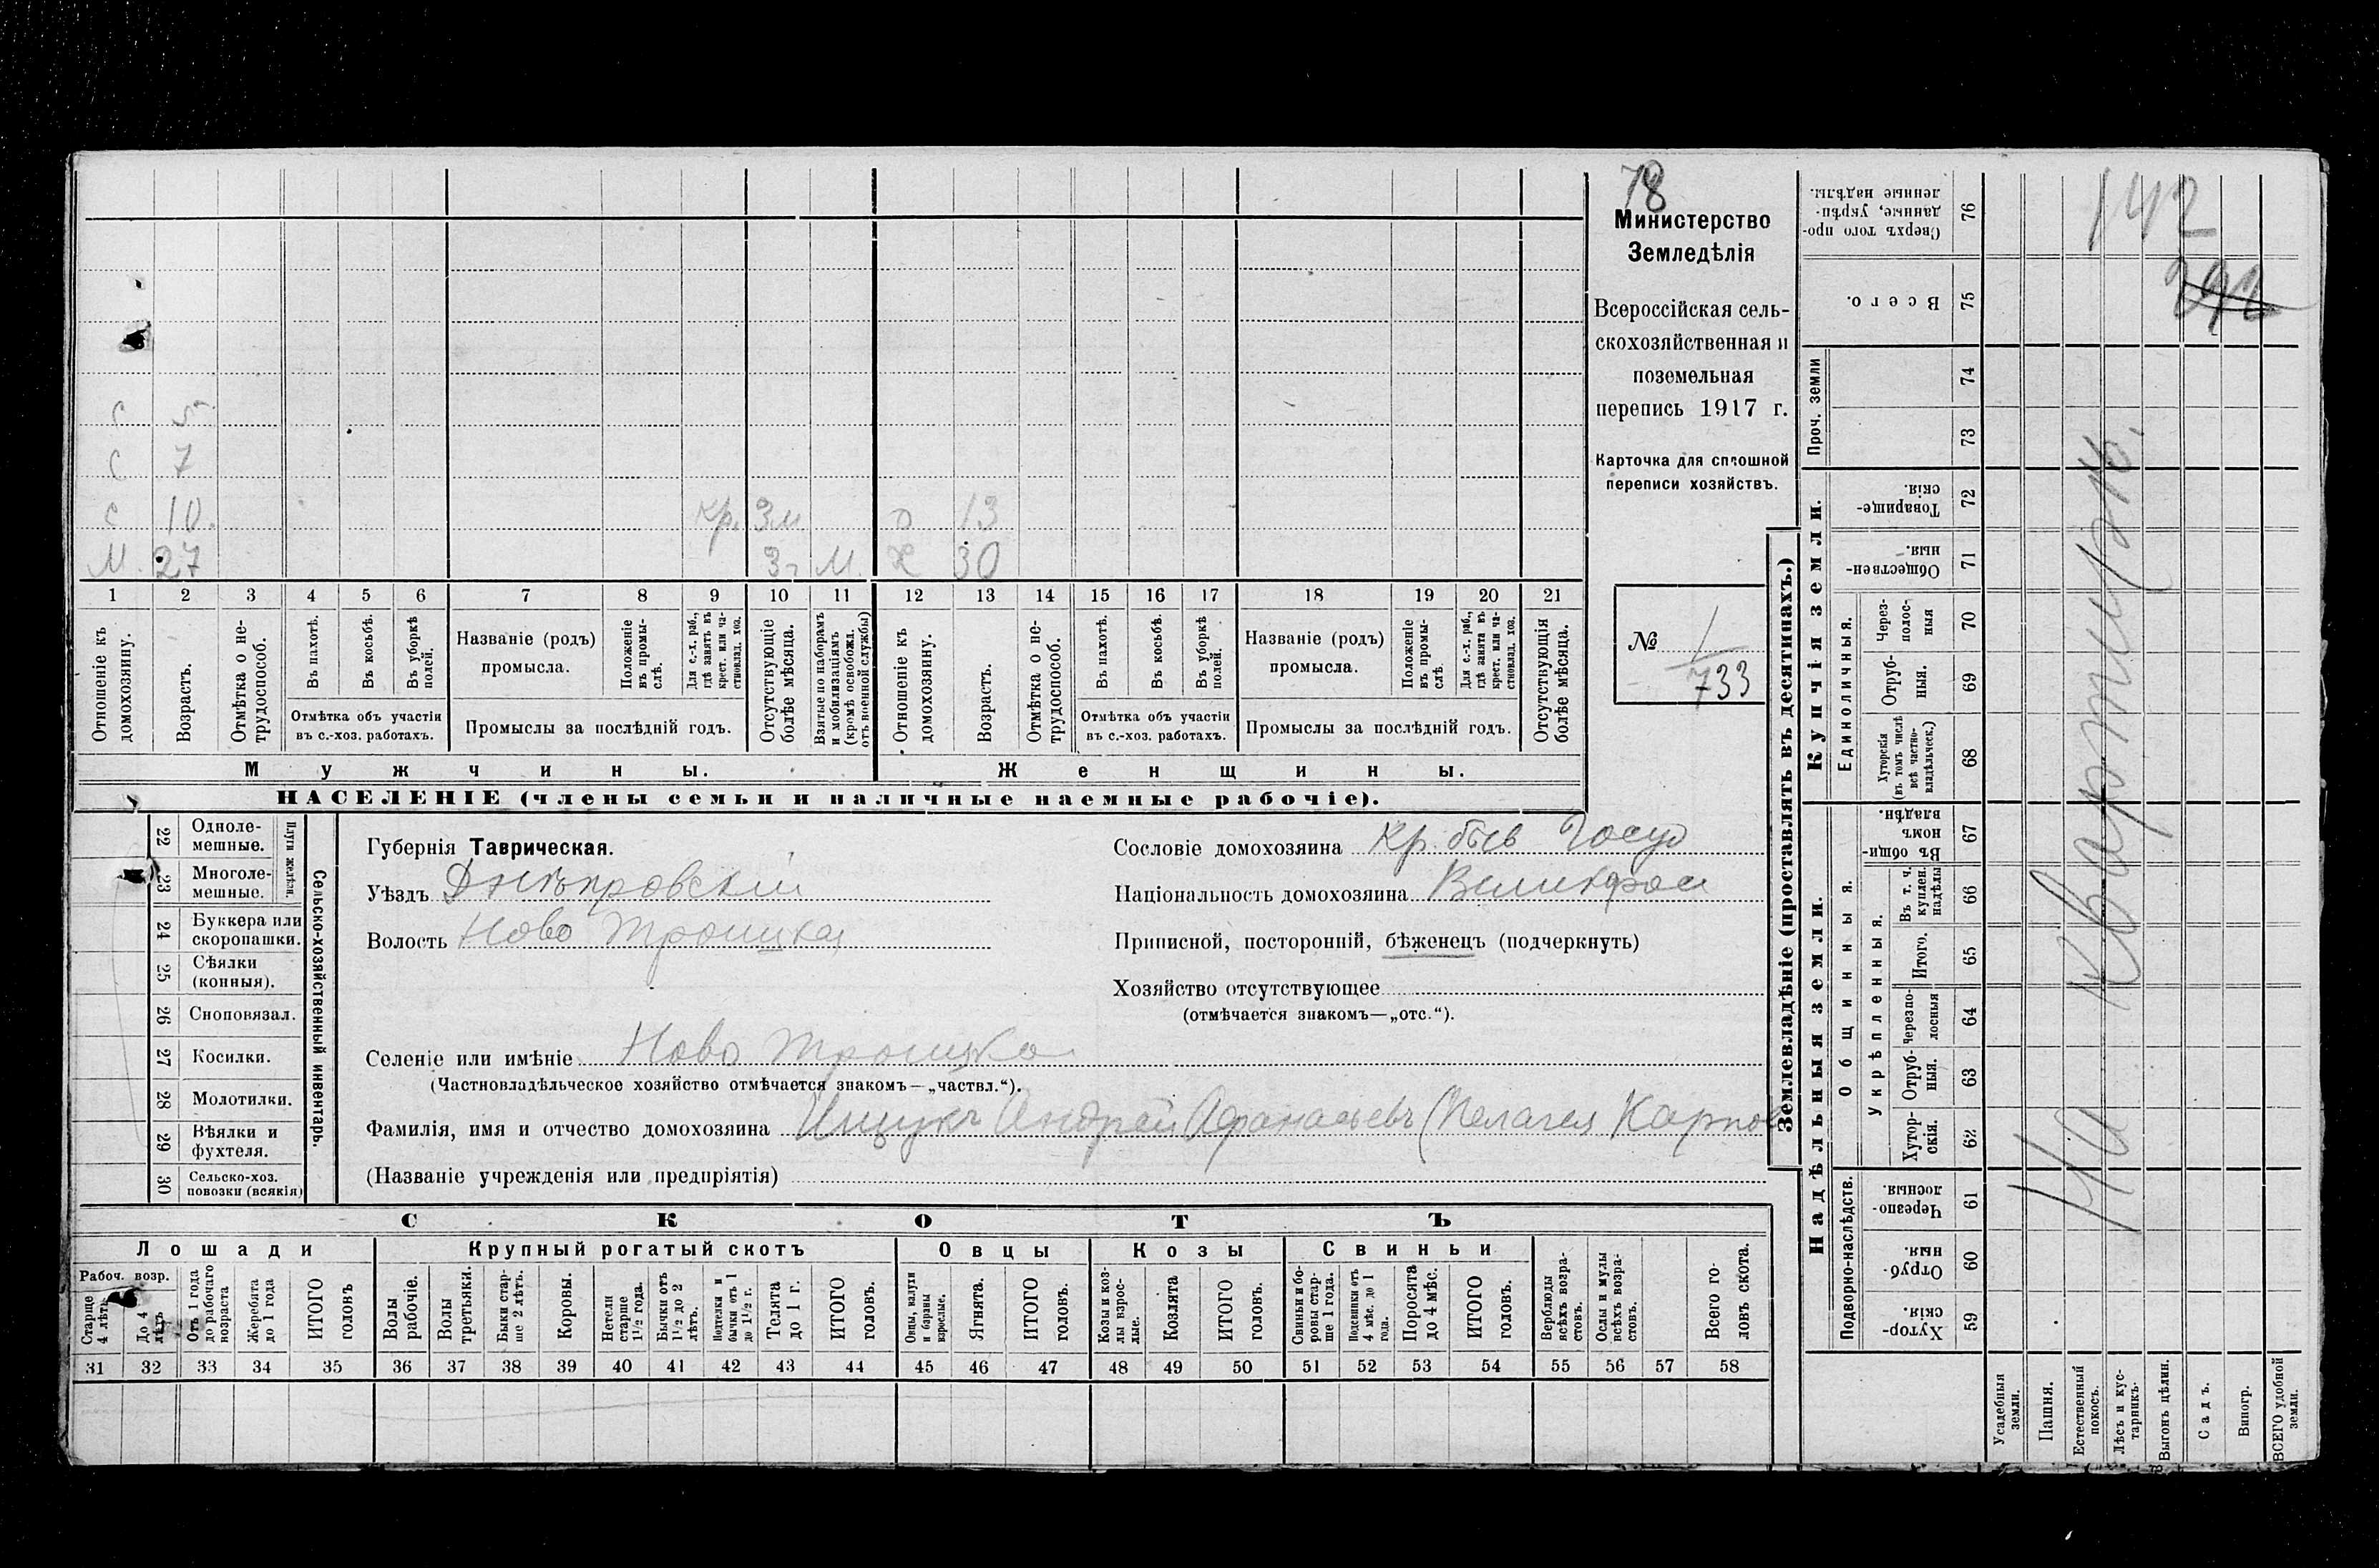 78
Министерство
Земледѣлія
Всероссійская сель-
скохозяйственная и
поземельная
перепись 1917 г.
Карточка для сплошной
переписи хозяйствъ.
№ 1
733
С 5
С 7
С 10. кр. 3 м 13
М. 27 3 г М Х 30
1 2 3 4 5 6 7 8 9 10 11 12 13 14 15 16 17 18 19 20 21
Отношеніе къ домохозяину.
Возрастъ.
Отмѣтка о не-трудоспособ.
Въ пахотѣ.
Въ косьбѣ.
Въ уборкѣ полей.
Отмѣтка объ участіи
въ с.-хоз. работахъ.
Названіе (родъ)
промысла.
Положеніе въ промы-слѣ.
Для с.-х. раб., гдѣ занятъ въ крест. или ча-стновлад. хоз.
Промыслы за послѣдній годъ.
Отсутствующіе болѣе мѣсяца.
Взятые по наборамъ и мобилизаціямъ (кромѣ освобожд. отъ военной службы)
Отношеніе къ домохозяину.
Возрастъ.
Отмѣтка о не-трудоспособ.
Въ пахотѣ.
Въ косьбѣ.
Въ уборкѣ полей.
Отмѣтка объ участіи
въ с.-хоз. работахъ.
Названіе (родъ)
промысла.
Положеніе въ промы-слѣ.
Для с.-х. раб., гдѣ занята въ крест. или ча-стновлад. хоз.
Промыслы за послѣдній годъ.
Отсутствующія болѣе мѣсяца.
Мужчины.
Женщины.
НАСЕЛЕНІЕ (члены семьи и наличные наемные рабочіе).
Сельско-хозяйственный инвентарь.
Плуги желѣзн.
22 Одноле-мешные.
23 Многоле-мешные.
24 Буккера или скоропашки.
25 Сѣялки (конныя).
26 Сноповязал.
27 Косилки.
28 Молотилки.
29 Вѣялки и фухтеля.
30 Сельско-хоз. повозки (всякія)
Губернія Таврическая.
Уѣздъ Днѣпровскій
Волость Ново Троицкая
Селеніе или имѣніе Ново Троицко
(Частновладѣльческое хозяйство отмѣчается знакомъ—„частвл.“).
Фамилія, имя и отчество домохозяина Ищукъ Андрей Афанасьевъ (Пелагея Карпов
(Названіе учрежденія или предпріятія)
Сословіе домохозяина Кр. быв Госуд
Національность домохозяина Великорос
Приписной, посторонній, бѣженецъ (подчеркнуть)
Хозяйство отсутствующее
(отмѣчается знакомъ—„отс.“).
СКОТЪ
Лошади
Крупный рогатый скотъ
Овцы
Козы
Свиньи
Рабоч. возр.
Старше 4 лѣтъ
До 4 лѣтъ
Отъ 1 года до рабочаго возраста
Жеребята до 1 года
ИТОГО головъ
Волы рабочіе.
Волы третьяки.
Быки стар-ше 2 лѣтъ.
Коровы.
Нетели старше 1½ года.
Бычки отъ 1½ до 2 лѣтъ.
Подтелки и бычки отъ 1 до 1½ г.
Телята до 1 г.
ИТОГО головъ.
Овцы, валухи и бараны взрослые.
Ягнята.
ИТОГО головъ.
Козы и коз-лы взрос-лые.
Козлята
ИТОГО головъ.
Свиньи и бо-ровы стар-ше 1 года.
Подсвинки отъ 4 мѣс. до 1 года.
Поросята до 4 мѣс.
ИТОГО головъ.
Верблюды всѣхъ возра-стовъ.
Ослы и мулы всѣхъ возра-стовъ.
Всего го-ловъ скота.
31 32 33 34 35 36 37 38 39 40 41 42 43 44 45 46 47 48 49 50 51 52 53 54 55 56 57 58
Землевладѣніе (проставлять въ десятинахъ.)
Надѣльныя земли.
Купчія земли.
Проч. земли
Подворно-наслѣдств.
Общинныя.
Укрѣпленныя.
Единоличныя.
Сверхъ того про-данные, укрѣп-ленные надѣлы. 76
Всего. 75
74
73
Товарище-скія. 72
Обществен-ныя. 71
Через-полос-ныя 70
Отруб-ныя. 69
Хуторскія (въ томъ числѣ всѣ частно-владѣльческ.) 68
Въ общин-номъ владѣн. 67
Въ т. ч. куплен. надѣлы 66
Итого. 65
черезпо-лосныя 64
Отруб-ныя. 63
Хутор-скія. 62
Черезпо-лосныя. 61
Отруб-ныя. 60
Хутор-скія. 59
Усадебныя земли.
Пашня.
Естественный покосъ.
Лѣсъ и кус-тарникъ.
Выгонъ цѣлин.
Садъ.
Виногр.
ВСЕГО удобной земли.
142
На квартирѣ